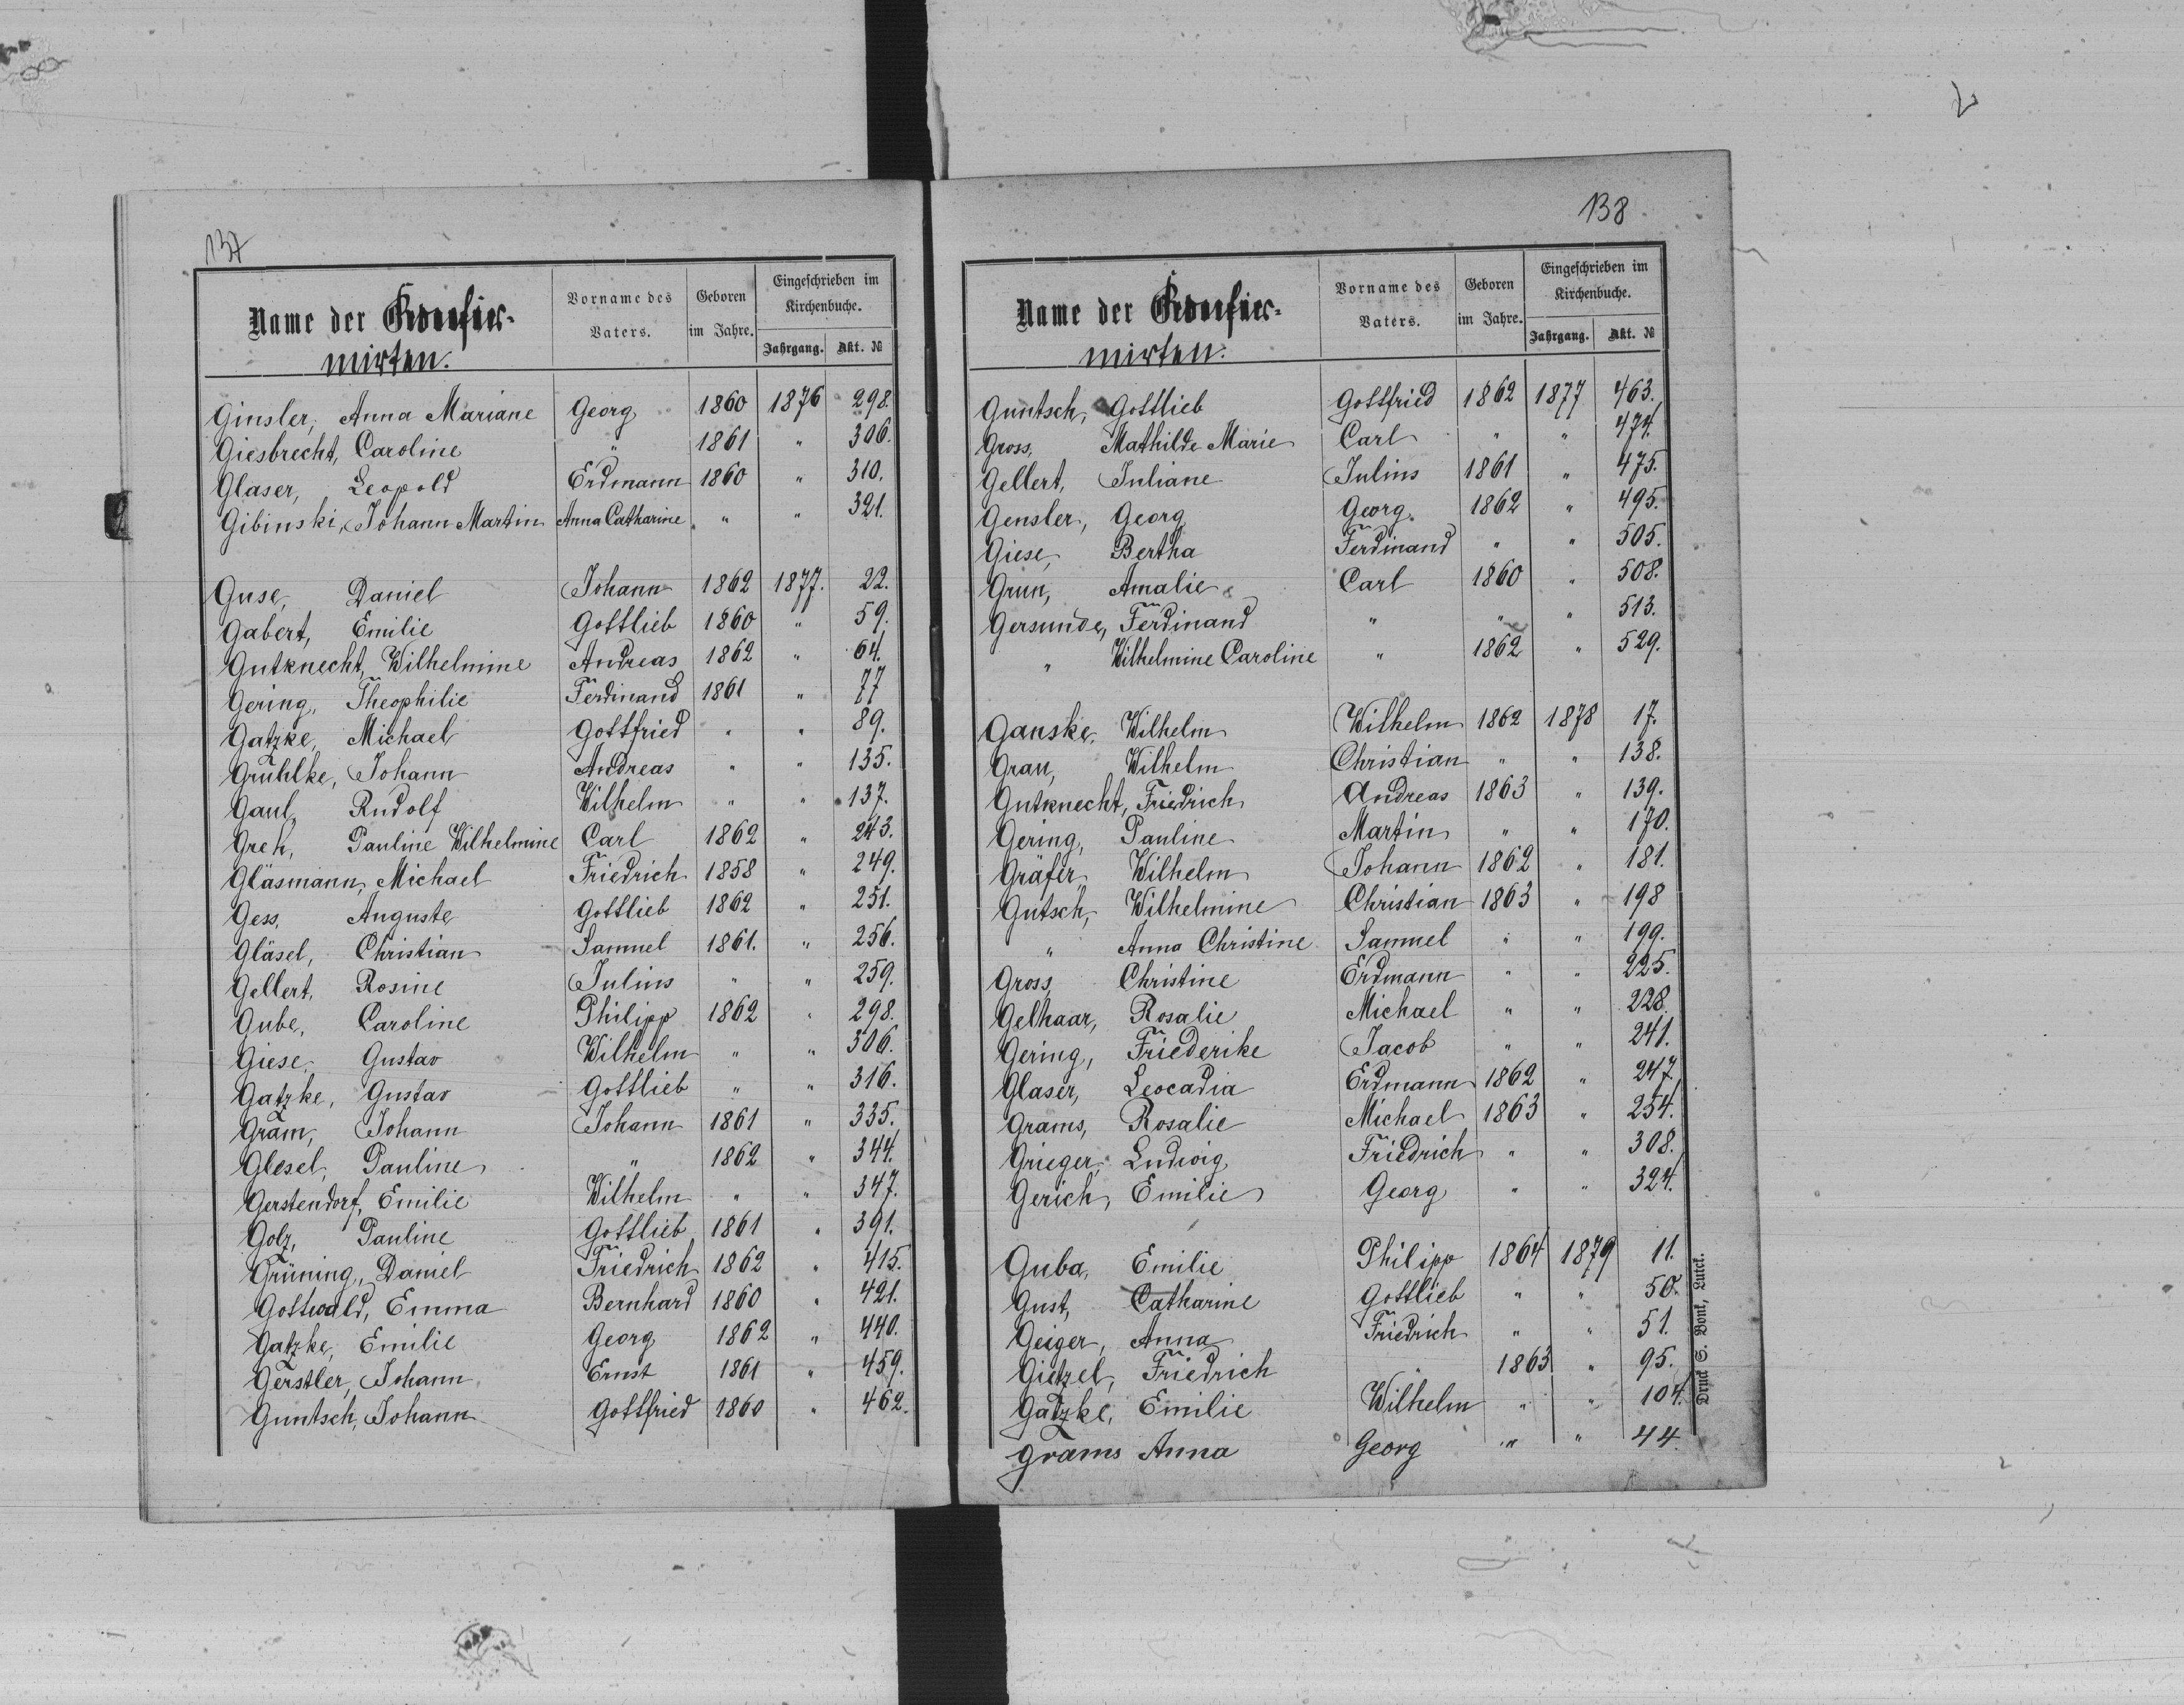 137
Name der Konfir-
mirten.
Vorname des Vaters.
Geboren im Jahre.
Eingeschrieben im Kirchenbuche.
Jahrgang. Akt. №
Ginsler, Anna Mariane Georg 1860 1876 298.
Giesbrecht, Caroline " 1861 " 306.
Glaser, Leopold Erdmann 1860 " 310.
Gibinski, Johann Martin Anna Catharine " " 321.
Guse, Daniel Johann 1862 1877. 22.
Gabert, Emilie Gottlieb 1860 " 59.
Gutknecht, Wilhelmine Andreas 1862 " 64.
Gering, Theophilie Ferdinand 1861 " 77
Gatzke, Michael Gottfried " " 89.
Grühlke, Johann Andreas " " 135.
Gaul, Rudolf Wilhelm " " 137.
Greh, Pauline Wilhelmine Carl 1862 " 243.
Gläsmann, Michael Friedrich 1858 " 249.
Gess, Auguste Gottlieb 1862 " 251.
Gläsel, Christian Samuel 1861. " 256.
Gellert, Rosine Julius " " 259.
Gube, Caroline Philipp 1862 " 298.
Giese, Gustav Wilhelm " " 306.
Gatzke, Gustav Gottlieb " " 316.
Gram, Johann Johann 1861 " 335.
Glesel, Pauline " 1862 " 344.
Gerstendorf, Emilie Wilhelm " " 347.
Golz, Pauline Gottlieb 1861 " 391.
Grüning, Daniel Friedrich 1862 " 415.
Gottwald, Emma Bernhard 1860 " 421.
Gatzke, Emilie Georg 1862 " 440.
Gerstler, Johann Ernst 1861 " 459.
Guntsch, Johann Gottfried 1860 " 462.
138
Name der Konfir-
mirten.
Vorname des Vaters.
Geboren im Jahre.
Eingeschrieben im Kirchenbuche.
Jahrgang. Akt. №
Guntsch, Gottlieb Gottfried 1862 1877 463.
Gross, Mathilde Marie Carl " " 474.
Gellert, Juliane Julius 1861 " 475.
Gensler, Georg Georg 1862 " 495.
Giese, Bertha Ferdinand " " 505.
Grun, Amalie Carl 1860 " 508.
Gersunde, Ferdinand " " " 513.
" Wilhelmine Caroline " 1862 " 529.
Ganske, Wilhelm Wilhelm 1862 1878 17.
Grau, Wilhelm Christian " " 138.
Gutknecht, Friedrich Andreas 1863 " 139.
Gering, Pauline Martin " " 170.
Gräfer Wilhelm Johann 1862 " 181.
Gutsch, Wilhelmine Christian 1863 " 198
" Anna Christine Samuel " " 199.
Gross, Christine Erdmann " " 225.
Gelhaar, Rosalie Michael " " 228.
Gering, Friederike Jacob " " 241.
Glaser, Leocadia Erdmann 1862 " 247.
Grams, Rosalie Michael 1863 " 254.
Grieger, Ludwig Friedrich " " 308.
Gerich, Emilie Georg " " 324.
Guba, Emilie Philipp 1864 1879 11.
Gust, Catharine Gottlieb " " 50.
Geiger, Anna Friedrich " " 51.
Gietzel, Friedrich " 1863 " 95.
Gatzke, Emilie Wilhelm " " 104.
Grams Anna Georg " " 44.
Druck S. Bonk, Lutck.